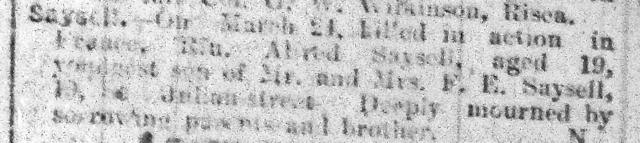 W. Wilkinson, Risca.
Saysell.—On March 24, killed in action in
France, Rfn. Alfred Saysell, aged 19,
youngest son of Mr. and Mrs. F. E. Saysell,
19, St. Julian-street. Deeply mourned by
sorrowing parents and brother.
N